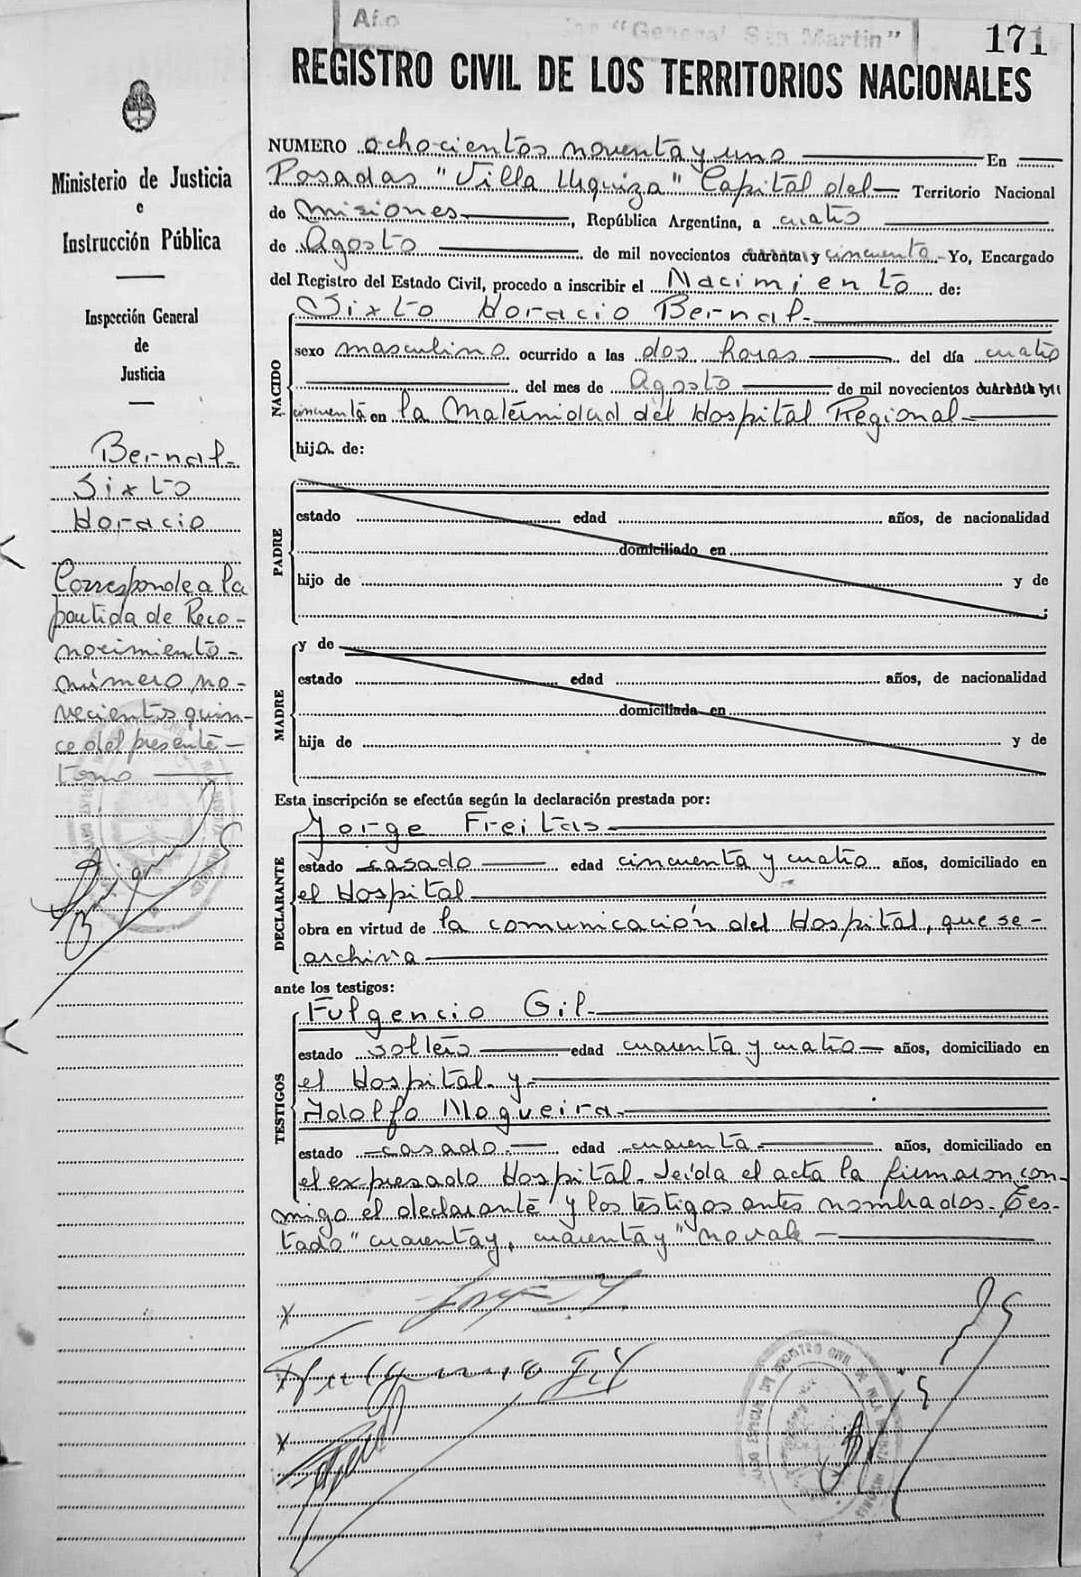 Año "General San Martin"
171
REGISTRO CIVIL DE LOS TERRITORIOS NACIONALES
Ministerio de Justicia
e
Instrucción Pública
Inspección General
de
Justicia
Bernal-
Sixto
Horacio
Corresponde a la
partida de Reco-
nocimiento-
número no-
vecientos quin-
ce del presente-
tomo
NUMERO ochocientos noventa y uno En
Posadas "Villa Urquiza" Capital del Territorio Nacional
de Misiones, República Argentina, a cuatro
de Agosto de mil novecientos cuarenta y cincuenta - Yo, Encargado
del Registro del Estado Civil, procedo a inscribir el Nacimiento de:
NACIDO
Sixto Horacio Bernal-
sexo masculino ocurrido a las dos horas del día cuatro
del mes de Agosto de mil novecientos cuarenta y
cincuenta en la Maternidad del Hospital Regional-
hijo de:
PADRE
estado edad años, de nacionalidad
domiciliado en
hijo de y de
;
MADRE
y de
estado edad años, de nacionalidad
domiciliada en
hija de y de
Esta inscripción se efectúa según la declaración prestada por:
DECLARANTE
Jorge Freitas
estado casado edad cincuenta y cuatro años, domiciliado en
el Hospital
obra en virtud de la comunicación del Hospital, que se-
archiva
ante los testigos:
TESTIGOS
Fulgencio Gil-
estado soltero edad cuarenta y cuatro años, domiciliado en
el Hospital y
Adolfo Nogueira-
estado casado.- edad cuarenta años, domiciliado en
el expresado Hospital. Leída el acta la firmaron con-
migo el declarante y los testigos antes nombrados.-
tado "cuarenta y, cuarenta y" no vale -
X
X Fulgencio Gil
X